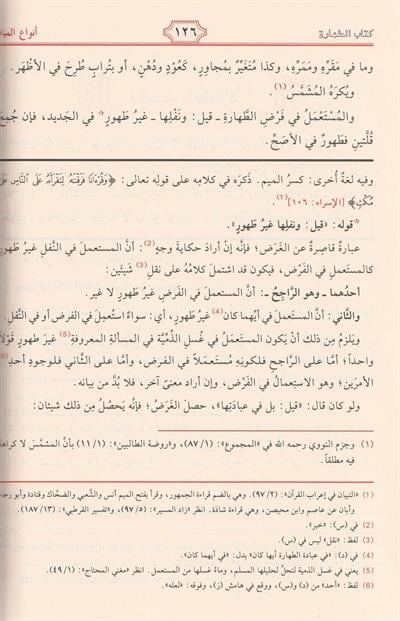 كتاب الطهارة ١٢٦ أنواع المياه
وما في مَقَرِّه ومَمَرِّه، وكذا مُتَغَيِّرٌ بمُجاوِرٍ، كعُوْدٍ ودُهْنٍ، أو بتُرابٍ طُرِحَ في الأظْهَرِ.
ويُكرَهُ المُشَمَّسُ(١).
والمُسْتَعْمَلُ في فَرْضِ الطَّهارةِ ـ قيل: ونَفْلِها ـ غيرُ طَهورٍ* في الجديد، فإن جُمِعَ
قُلَّتَينِ فطَهورٌ في الأصَحِّ.
وفيه لغةٌ أخرى: كسرُ الميم. ذَكَرَه في كلامِه على قولِه تعالى: ﴿وَقُرْءَانًا فَرَقْنَاهُ لِتَقْرَأَهُ عَلَى النَّاسِ عَلَى
مُكْثٍ﴾ [الإسراء: ١٠٦](١).
*قوله: «قيل: ونفلِها غيرُ طهورٍ».
عبارةٌ قاصِرةٌ عن الغَرَض؛ فإنَّه إنْ أرادَ حكايةَ وجهٍ(2): أنَّ المستعملَ في النَّفلِ غيرُ طهورٍ
كالمستعمَلِ في الفَرْض، فيكون قد اشتملَ كلامُهُ على نقلِ(3) شَيئَين:
أحدُهما ـ وهو الرَّاجِحُ ـ: أنَّ المستعملَ في الفرضِ غيرُ طهورٍ لا غير.
والثَّاني: أنَّ المستعملَ في أيِّهما كان(4) غيرُ طهورٍ، أي: سواءٌ استُعمِلَ في الفرض أو في النَّفلِ.
ويَلزمُ مِن ذلك أنْ يكون المستعمَلُ في غُسلِ الذِّمِّيَّة في المسألةِ المعروفة(5) غيرَ طهورٍ قَوْلاً
واحداً؛ أمَّا على الرَّاجح فلكونِه مُستَعمَلاً في الفرض، وأمَّا على الثَّاني فلوجودِ أحدِ(6)
الأمرَينِ؛ وهو الاستِعمالُ في الفَرْض، وإن أراد معنىً آخر، فلا بُدَّ من بيانه.
ولو كان قال: «قيل: بل في عبادَتِها»، حصلَ الغَرَضُ؛ فإنَّه يَحصُلُ مِن ذلك شيئان:
(١) وجزم النووي رحمه الله في «المجموع»: (٨٧/١)، و«روضة الطالبين»: (١١/١) بأنَّ المشمَّسَ لا كراهة
فيه مطلقاً.
(1) «التبيان في إعراب القرآن»: (٩٧/٢). وهي بالضم قراءة الجمهور، وقرأ بفتح الميم أنس والشَّعبي والضحَّاك وقتادة وأبو رجاء
وأبان عن عاصم وابن محيصن، وهي قراءة شاذة. انظر «زاد المسير»: (٩٧/٥)، و«تفسير القرطبي»: (١٨٧/١٣).
(2) في (س): «خبر».
(3) لفظ: «نقل» ليس في (س).
(4) في (د): «في عبادة الطهارة أيها كان» بدل: «في أيهما كان».
(5) يعني في غسل الذمية لتحلَّ لحليلها المسلم، وماءُ غسلها من المستعمل. انظر «مغني المحتاج»: (٤٩/١).
(6) لفظ: «أحد» من (د) و(س)، ووقع في هامش (ز)، وفوقه: «العله».